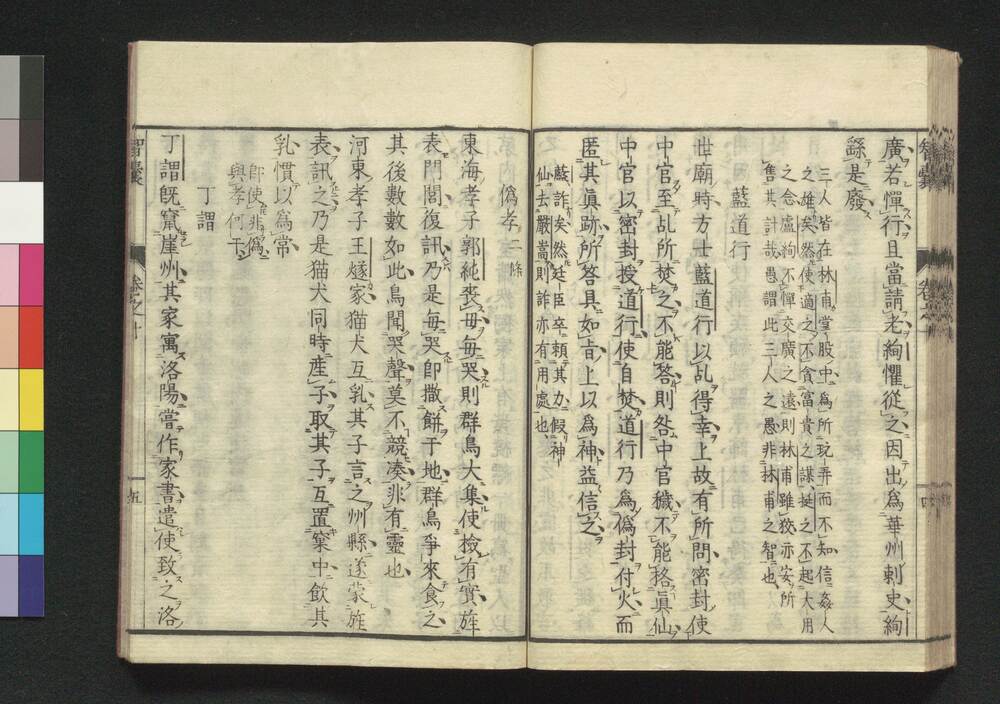 廣若憚行且當請老絢懼從之因出爲華州刺史絢
繇是廢
三人皆在林甫掌股中爲所玩弄而不知信姦人
之雄矣然使適之不貪富貴之謀挺之不起大用
之念盧絢不憚交廣之遠則林甫雖狡亦安所
售其計哉愚謂此三人之愚非林甫之智也
藍道行
世廟時方士藍道行以乩得幸上故有所問密封使
中官至乩所焚之不能答則咎中官穢不能格眞仙
中官以密封授道行使自焚道行乃爲僞封付火而
匿其眞跡所答具如旨上以爲神益信之
藍詐矣然廷臣卒賴其力假神
仙去嚴嵩則詐亦有用處也
智囊 卷之十 四
僞孝 二條
東海孝子郭純喪母每哭則群鳥大集使檢有實旌
表門閭復訊乃是每哭卽撒餅于地群鳥爭來食之
其後數數如此鳥聞哭聲莫不競湊非有靈也
河東孝子王燧家猫犬互乳其子言之州縣遂蒙旌
表訊之乃是猫犬同時産子取其子互置窠中飲其
乳慣以爲常
卽使非僞
與孝何干
丁謂
丁謂旣竄崖州其家寓洛陽嘗作家書遣使致之洛
智囊 卷之十 五